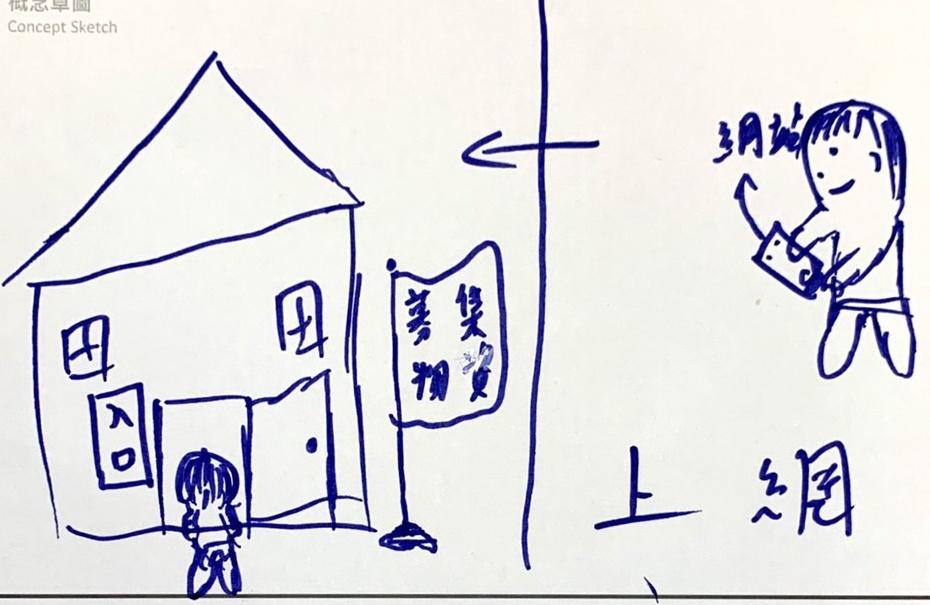 概念草圖
Concept Sketch
網站
募集
物資
入口
上網